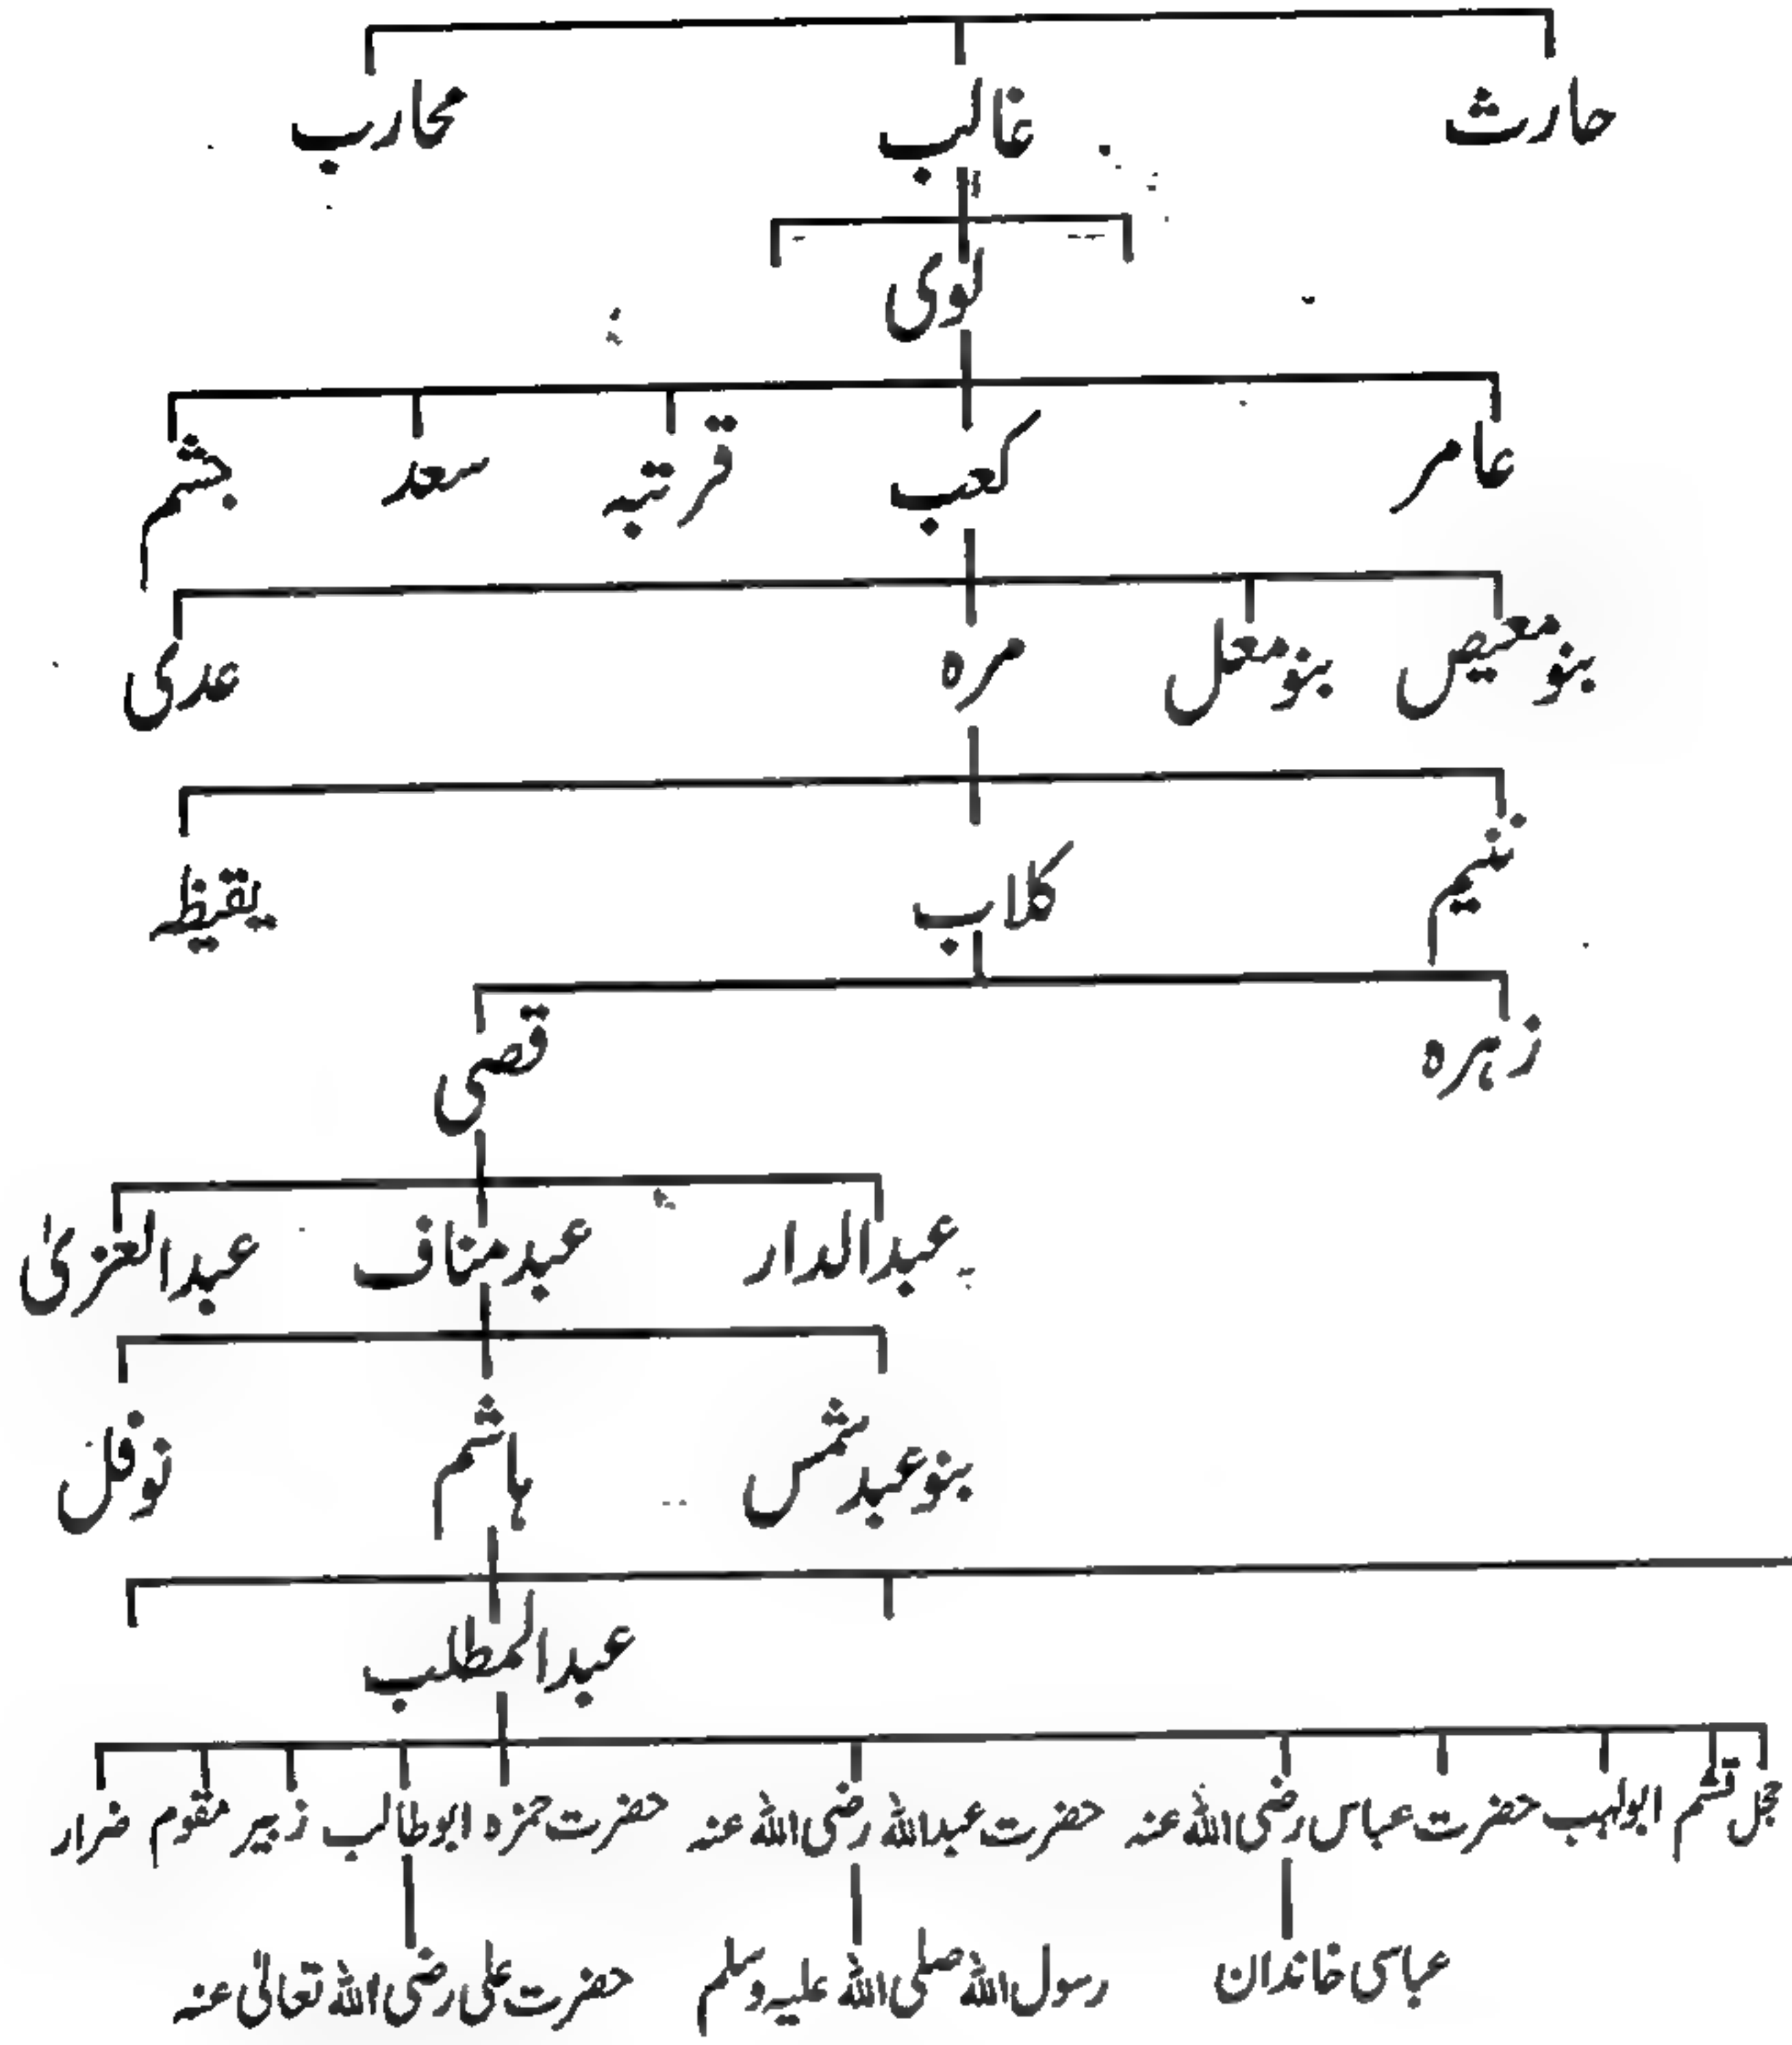 حارث غالب محارب
لوی
عامر کعب قرتبہ سعد جشم
بنو معیص بنو معل مرہ عدی
تیم کلاب یقیظہ
زہرہ قصی
عبدالدار عبد مناف عبدالعزیٰ
بنو عبد شمس ہاشم نوفل
عبدالمطلب
حجل قثم ابولہب حضرت عباس رضی اللہ عنہ حضرت عبداللہ رضی اللہ عنہ حضرت حمزہ ابو طالب زبیر مقوم ضرار
عباسی خاندان رسول اللہ صلی اللہ علیہ وسلم حضرت علی رضی اللہ تعالیٰ عنہ